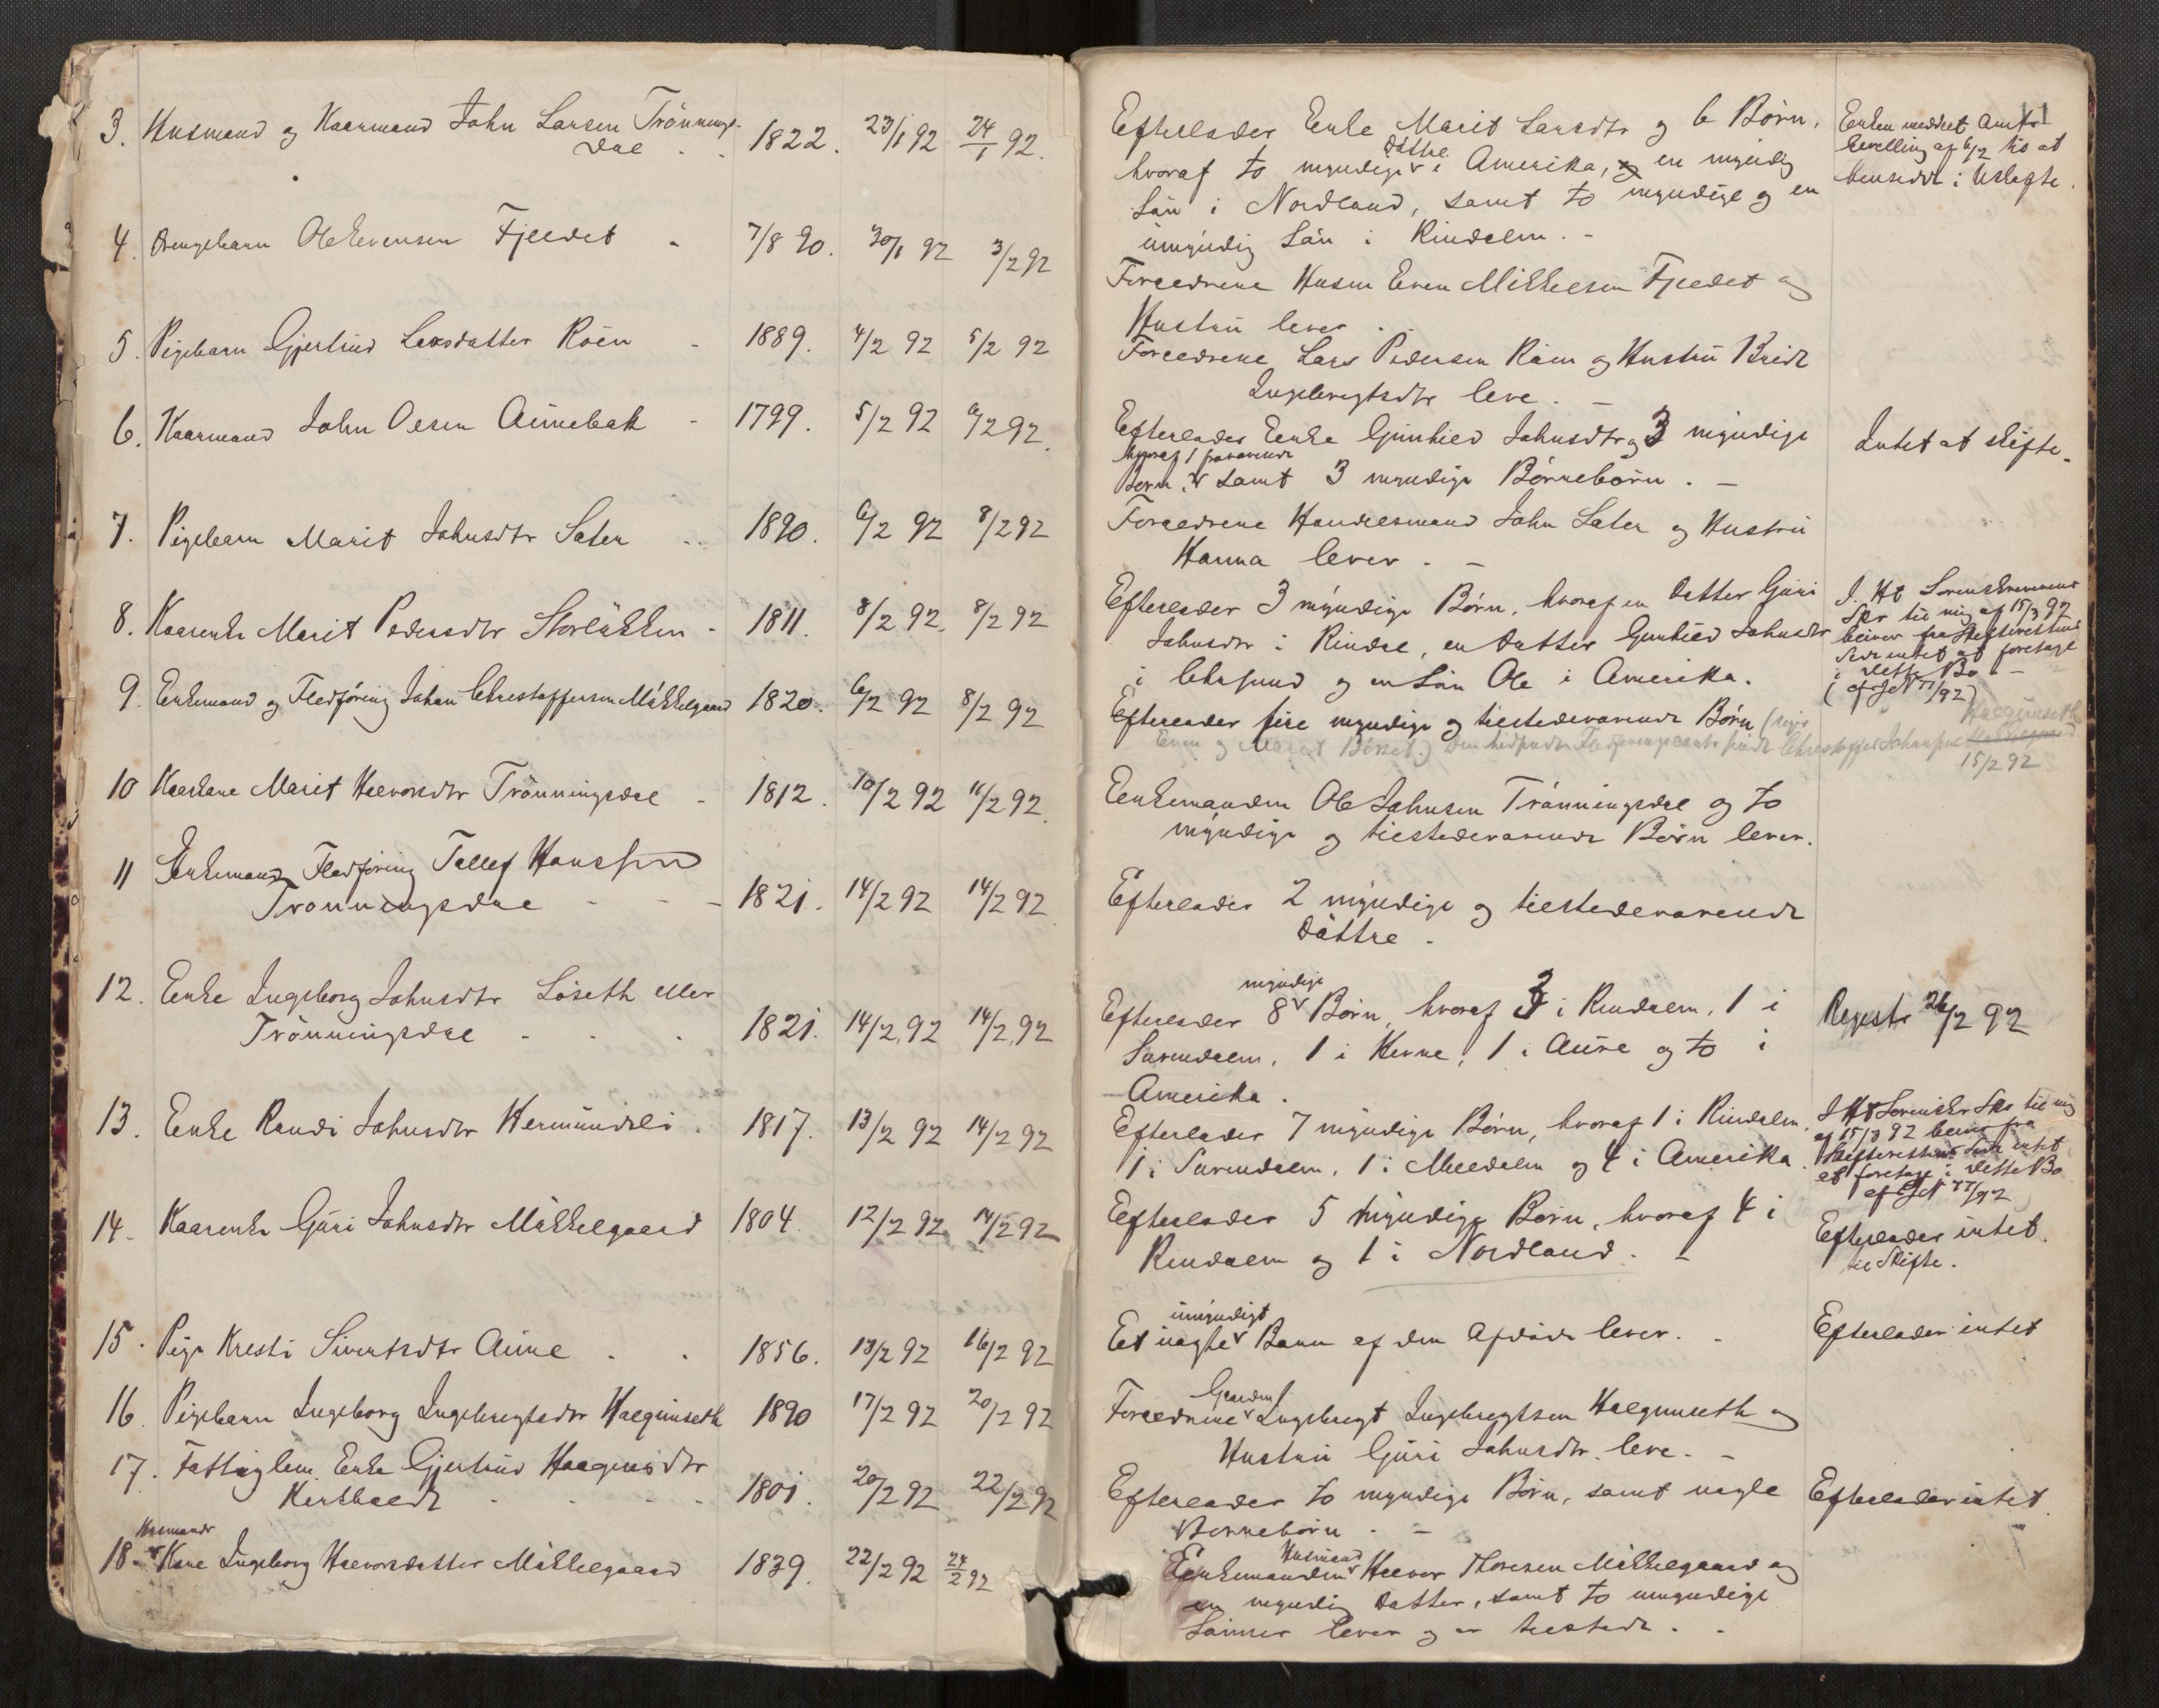 3. Husmand og Kaarmand John Larsen Trönnings-
dal 1822. 23/1 92 24/1 92.
4. Drengebarn Ole Evensen Fjeldet 7/8 90. 30/1 92 3/2 92
5. Pigebarn Gjertrud Larsdatter Röen 1889. 4/2 92 5/2 92
6. Kaarmand John Olsen Aunebak 1799. 5/2 92 6/2 92.
7. Pigebarn Marit Johnsdtr Sater 1890. 6/2 92 8/2 92
8. Kaarenke Marit Pedersdtr Storlökken 1811. 8/2 92. 8/2 92
9. Enkemand og Fledföring Johan Christoffersen Mikkelgaard 1820. 6/2 92 8/2 92
10 Kaarkone Marit Halvorsdtr Trönningsdal 1812. 10/2 92 11/2 92.
11 Enkemand og Fledföring Tollef Hanssen
Trönningsdal 1821. 14/2 92 14/2 92
12. Enke Ingeborg Johnsdtr Löseth eller
Trönningsdal 1821. 14/2 92 14/2 92
13. Enke Randi Johnsdtr Hermundsli 1817. 13/2 92 14/2 92
14. Kaarenke Guri Johnsdtr Mikkelgaard 1804. 12/2 92 14/2 92
15. Pige Kresti Sivertsdtr Aune 1856. 13/2 92 16/2 92
16. Pigebarn Ingeborg Ingebregtsdtr Halgunseth 1890 17/2 92 20/2 92
17. Fattiglem Enke Gjertrud Haagensdtr
1801. 20/2 92 22/2 92
Husmands
18. Kone Ingeborg Halvorsdatter Mikkelgaard 1839. 22/2 92 24/2 92
Efterlader Enke Marit Larsdtr og 6 Börn,
Döttre
hvoraf to myndige i Amerika, og en myndig
Sön i Nordland, samt to myndige og en
umyndig Sön i Rindalen.
Forældrene Husm Even Mikkelsen Fjeldet og
Hustru lever.
Forældrene Lars Pedersen Röen og Hustru Brit
Ingebregtsdtr leve.
Efterlader Enke Gunhild Johnsdtr og 3 myndige
hvoraf 1 fraværende
Börn, samt 3 myndige Börnebörn.
Forældrene Handelsmand John Sater og Hustru
Hanna lever.
Efterlader 3 myndige Börn, hvoraf en Datter Guri
Johnsdtr i Rindal, en Datter Gunhild Johnsdtr
i Chrsund og en Sön Ole i Amerika.
Efterlader fire myndige og tilstedeværende Börn
Enkemanden Ole Johnsen Trönningsdal og to
myndige og tilstedeværende Börn lever.
Efterlader 2 myndige og tilstedeværende
Döttre.
myndige
Efterlader 8 Börn, hvoraf 3 i Rindalen, 1 i
Surendalen, 1 i Hevne, 1 i Aure og to i
Amerika.
Efterlader 7 myndige Börn, hvoraf 1 i Rindalen,
1 i Surendalen, 1 i Meldalen og 4 i Amerika.
Efterlader 5 myndige Börn, hvoraf 4 i
Rindalen og 1 i Nordland.
umyndigt
Et uægte Barn af den Afdöde lever.
Gaardm
Forældrene Ingebregt Ingebregtsen Halgunseth og
Hustru Guri Johnsdtr. leve.
Efterlader to myndige Börn, samt nogle
Börnebörn.
Husmand
Enkemanden Halvor Thoresen Mikkelgaard og
en myndig Datter, samt to umyndige
Sönner lever og er tilstede.
Enken meddelt Amts-
bevilling af 6/2 til at
hensidde i Uskifte.
Intet at skifte.
I. Ht Sorenskriverens
Skr til mig af 15/3 92
bliver fra Skifterettens
Side intet at foretage
i dette Bo
(cf JN 77/92)
Halgunseth
15/2 92
Regist 26/2 92
I Ht Sorenskr Skr til mig
af 15/3 92 bliver fra
Skifterettens Side intet
at foretage i dette Bo
cf JN 77/92
Efterlader intet
til Skifte.
Efterlader intet
Efterlader intet.